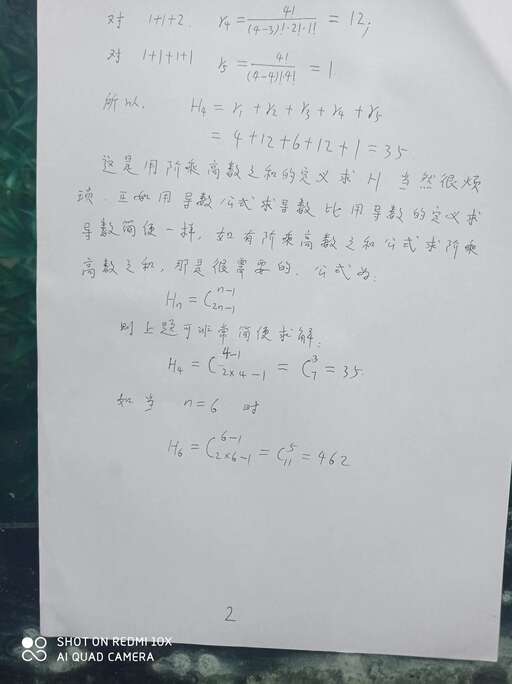 对 1+1+2. r₄ = 4!/((4-3)!·2!·1!) = 12;
对 1+1+1+1 r₅ = 4!/((4-4)!4!) = 1
所以. H₄ = r₁ + r₂ + r₃ + r₄ + r₅
= 4+12+6+12+1 = 35.
这是用阶乘高数之和的定义求H 当然很烦
琐. 正如用导数公式求导数比用导数的定义求
导数简便一样, 如有阶乘高数之和公式求阶乘
高数之和, 那是很需要的. 公式为:
Hₙ = C₂ₙ₋₁ⁿ⁻¹
则上题可非常简便求解:
H₄ = C₂ₓ₄₋₁⁴⁻¹ = C₇³ = 35.
如当 n=6 时
H₆ = C₂ₓ₆₋₁⁶⁻¹ = C₁₁⁵ = 462
2
SHOT ON REDMI 10X
AI QUAD CAMERA